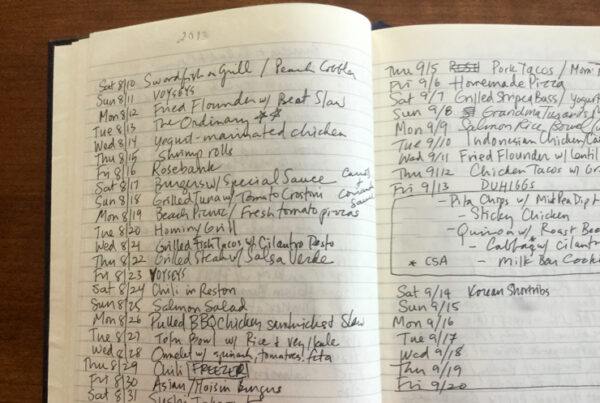 2013
Sat 8/10 Swordfish on Grill / Peach Cobbler
Sun 8/11 VOYSEYS
Mon 8/12 Fried Flounder w/ Beet Slaw
Tue 8/13 The Ordinary
Wed 8/14 yogurt-marinated chicken
Thu 8/15 Shrimp rolls
Fri 8/16 Rosebank
Sat 8/17 Burgers w/ Special Sauce
Sun 8/18 Grilled Tuna w/ Tomato Crostini
Mon 8/19 Beach Picnic / Fresh tomato pizzas
Tue 8/20 Hominy Grill
Wed 8/21 Grilled Fish Tacos w/ Cilantro Pesto
Thu 8/22 Grilled Steak w/ Salsa Verde
Fri 8/23 VOYSEYS
Sat 8/24 Chili in Reston
Sun 8/25 Salmon Salad
Mon 8/26 Pulled BBQ Chicken sandwiches & Slaw
Tue 8/27 Tofu Bowl w/ Rice & Veg/kale
Wed 8/28 Omelet w/ spinach, tomatoes, feta
Thu 8/29 Chili FREEZER
Fri 8/30 Asian/Hoisin Burgers
Sat 8/31 Sushi
Thu 9/5 Pork Tacos /
Fri 9/6 Homemade Pizza
Sat 9/7 Grilled Striped Bass / yogurt
Sun 9/8 Grandma
Mon 9/9 Salmon Rice Bowl
Tue 9/10 Indonesian Chicken
Wed 9/11 Fried Flounder w/ Lentil
Thu 9/12 Chicken Tacos w/
Fri 9/13 DUHIGGS
- Pita Chips w/ Dip
- Sticky Chicken
- Quinoa w/ Roast
- Cabbage w/ Cilantro
* CSA - Milk Bar Cook
Sat 9/14 Korean Shortribs
Sun 9/15
Mon 9/16
Tue 9/17
Wed 9/18
Thu 9/19
Fri 9/20